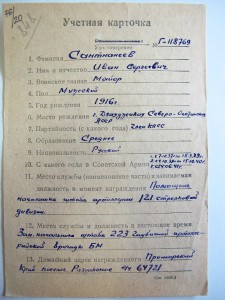 76/20
Учетная карточка
Г-118769
Удостоверение
1. Фамилия
2. Имя и отчество Иван Сергеевич
3. Воинское звание Майор
4. Пол Мужской
5. Год рождения 1916г
6. Место рождения г. Дзауджикау Северо-Осетинской АССР
7. Партийность (с какого года) Член КПСС
8. Образование Среднее
9. Национальность Русский
10. С какого года в Советской Армии
11. Место службы (наименование части) и занимаемая
должность в момент награждения Помощник
начальника штаба артиллерии 121 стрелковой
дивизии.
12. Место службы и должность в настоящее время
Зам. начальника штаба 223 артилле-
рийской бригады БМ
13. Домашний адрес награжденного Приморский
Край в/ч 64721